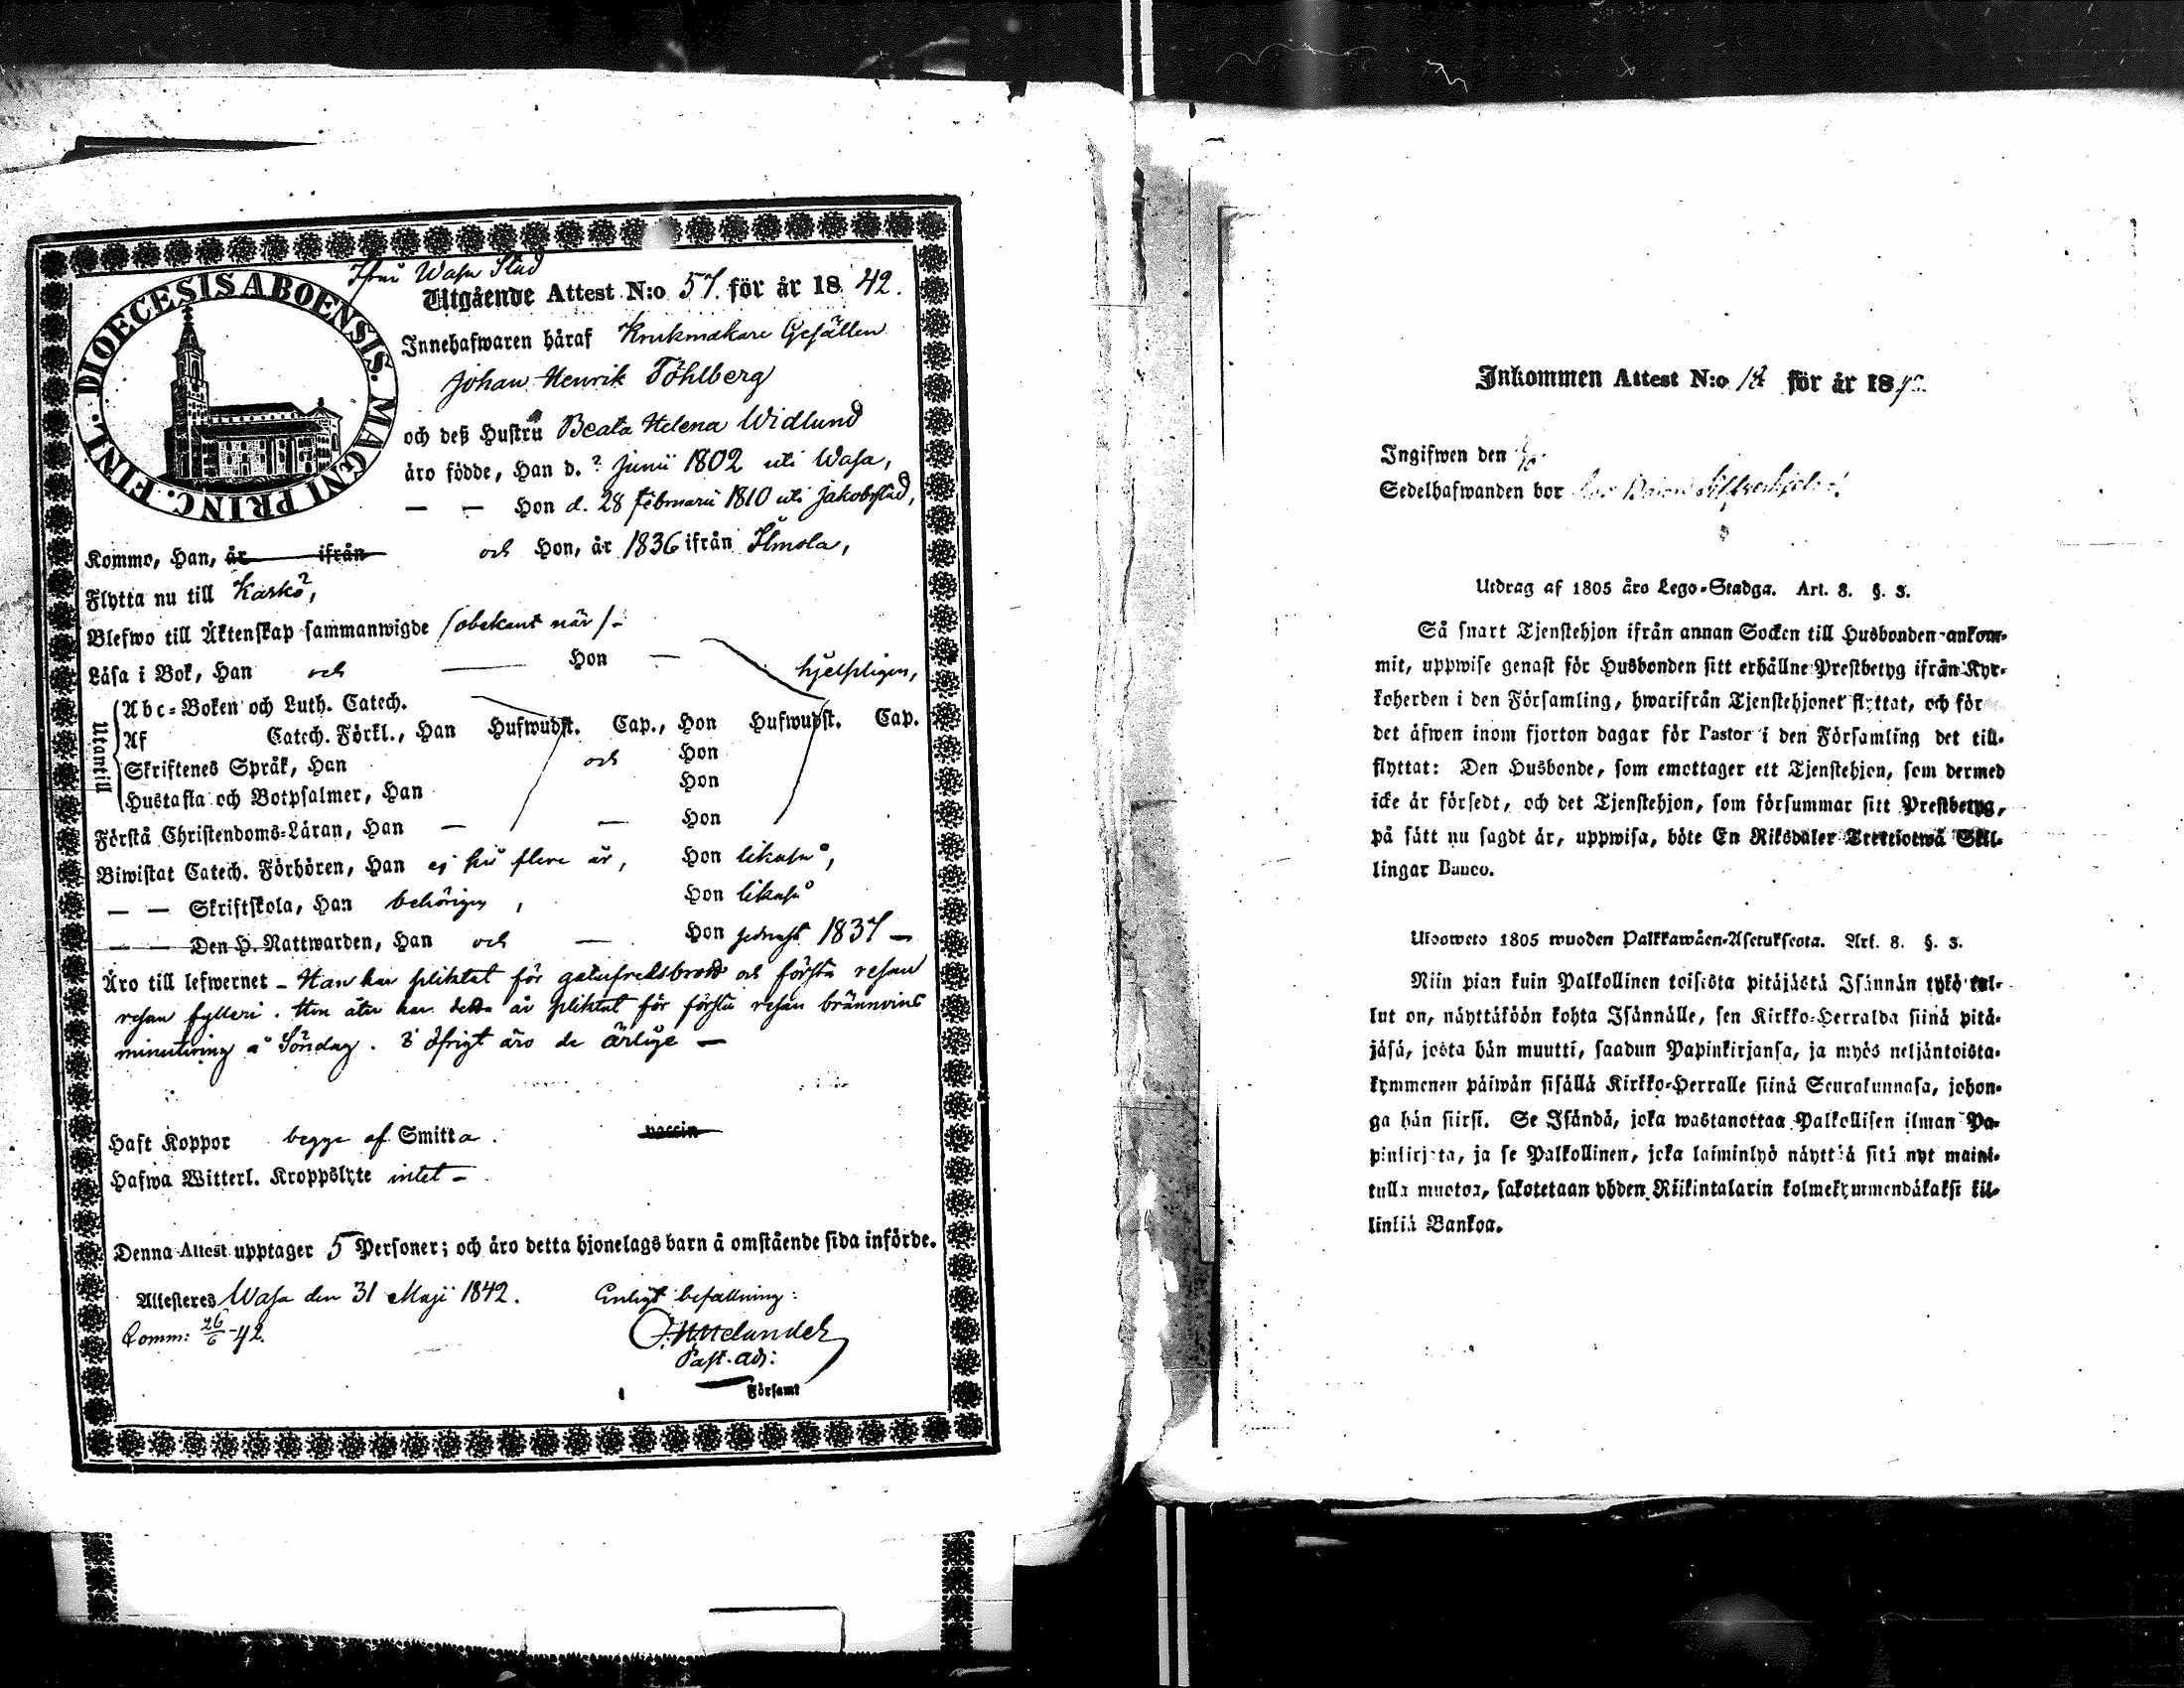 Ifrån Wasa Stad
DIOECESIS ABOENSIS. MAGNI PRINC. FINL.
Utgående Attest N:o 57. för år 1842.
Innehafwaren häraf Krukmakare Gesällen
Johan Henrik Töhlberg
och deß Hustru Beata Helena Widlund
äro födde, Han d. ? Junii 1802 uti Wasa,
— — Hon d. 28 Februarii 1810 uti Jakobstad,
Kommo, Han, år ifrån och Hon, år 1836 ifrån Ilmola,
Flytta nu till Kaskö?,
Blefwo till Äktenskap sammanwigde (obekant när) -
Läsa i Bok, Han och — Hon — hjelpligen,
Utantill
Abc-Boken och Luth. Catech.
Af Catech. Förkl., Han Hufwudst. Cap., Hon Hufwudst. Cap.
Skriftenes Språk, Han och Hon
Hustafla och Botpsalmer, Han Hon
Förstå Christendoms-Läran, Han — — Hon
Biwistat Catech. Förhören, Han ej på flere år, Hon likaså,
— — Skriftskola, Han behörigen, Hon likaså
— — Den H. Nattwarden, Han och — Hon sednast 1837 —
Äro till lefwernet - Han har pliktat för gatufredsbrott och första resan
resan fylleri. Hon åter har detta år pliktat för första resan brännvins
minutering å Söndag. I öfrigt äro de ärlige —
Haft Koppor begge af Smitta. vaccin
Hafwa Witterl. Kroppslyte intet -
Denna Attest upptager 5 Personer; och äro detta hjonelags barn å omstående sida införde.
Attesteres Wasa den 31 Maji 1842. Enligt befallning:
Comm: 26/6 -42.
Past. adj:
Församl
Inkommen Attest N:o 12 för år 18
Ingifwen den
Sedelhafwanden bor
Utdrag af 1805 åro Lego-Stadga. Art. 8. §. 3.
Så snart Tjenstehjon ifrån annan Socken till Husbonden ankom-
mit, uppwise genast för Husbonden sitt erhållne Prestbetyg ifrån Kyr-
koherden i den Församling, hwarifrån Tjenstehjonet flyttat, och för
det äfwen inom fjorton dagar för Pastor i den Församling det till-
flyttat: Den Husbonde, som emottager ett Tjenstehjon, som dermed
icke är försedt, och det Tjenstehjon, som försummar sitt Prestbetyg,
på sätt nu sagdt är, uppwisa, böte En Riksdaler Trettiotwå Skil-
lingar Banco.
Uloswcto 1805 wuoden Palkkawäen-Asetuksesta. Art. 8. §. 3.
Niin pian kuin Palkollinen toisesta pitäjästä Isännän tykö tul-
lut on, näyttäköön kohta Isännälle, sen Kirkko-Herralda siinä pitä-
jäsä, josta hän muutti, saadun Papinkirjansa, ja myös neljäntoista-
kymmenen päiwän sisällä Kirkko-Herralle siinä Seurakunnasa, johon-
ga hän siirsi. Se Isändä, joka wastanottaa Palkollisen ilman Pa-
pinkirjata, ja se Palkollinen, joka laiminlyö näyttää sitä nyt maini-
tulla muotoa, sakotetaan yhden Riikintalarin kolmekymmendäkaksi kil-
linkiä Bankoa.